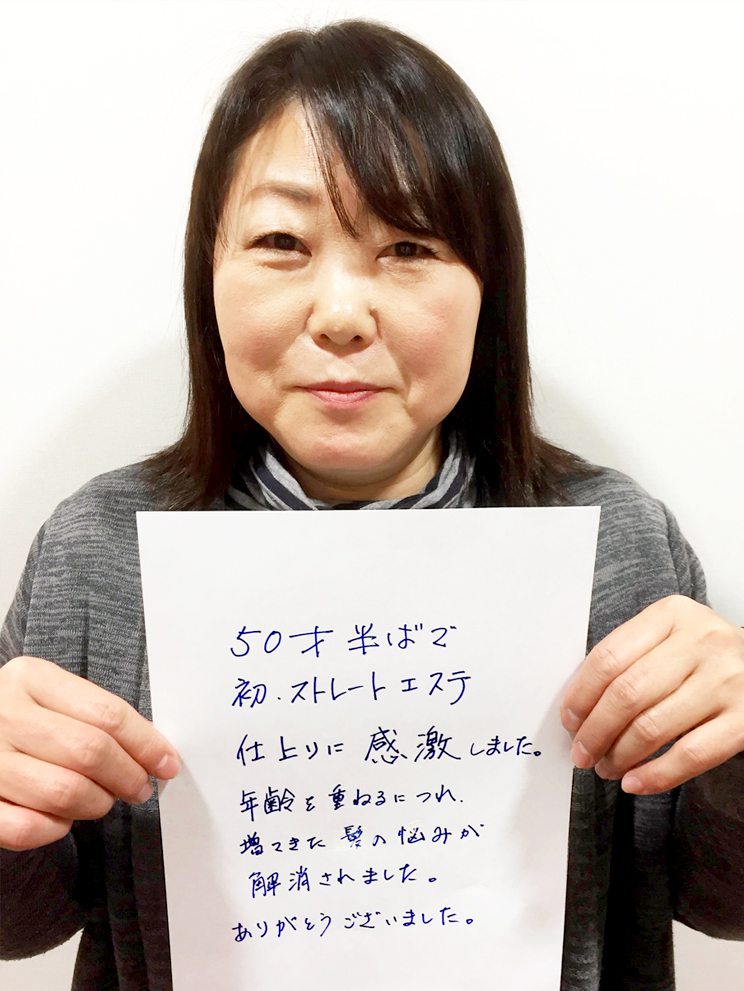 50才半ばで
初.ストレートエステ
仕上りに感激しました。
年齢を重ねるにつれ、
増てきた髪の悩みが
解消されました。
ありがとうございました。